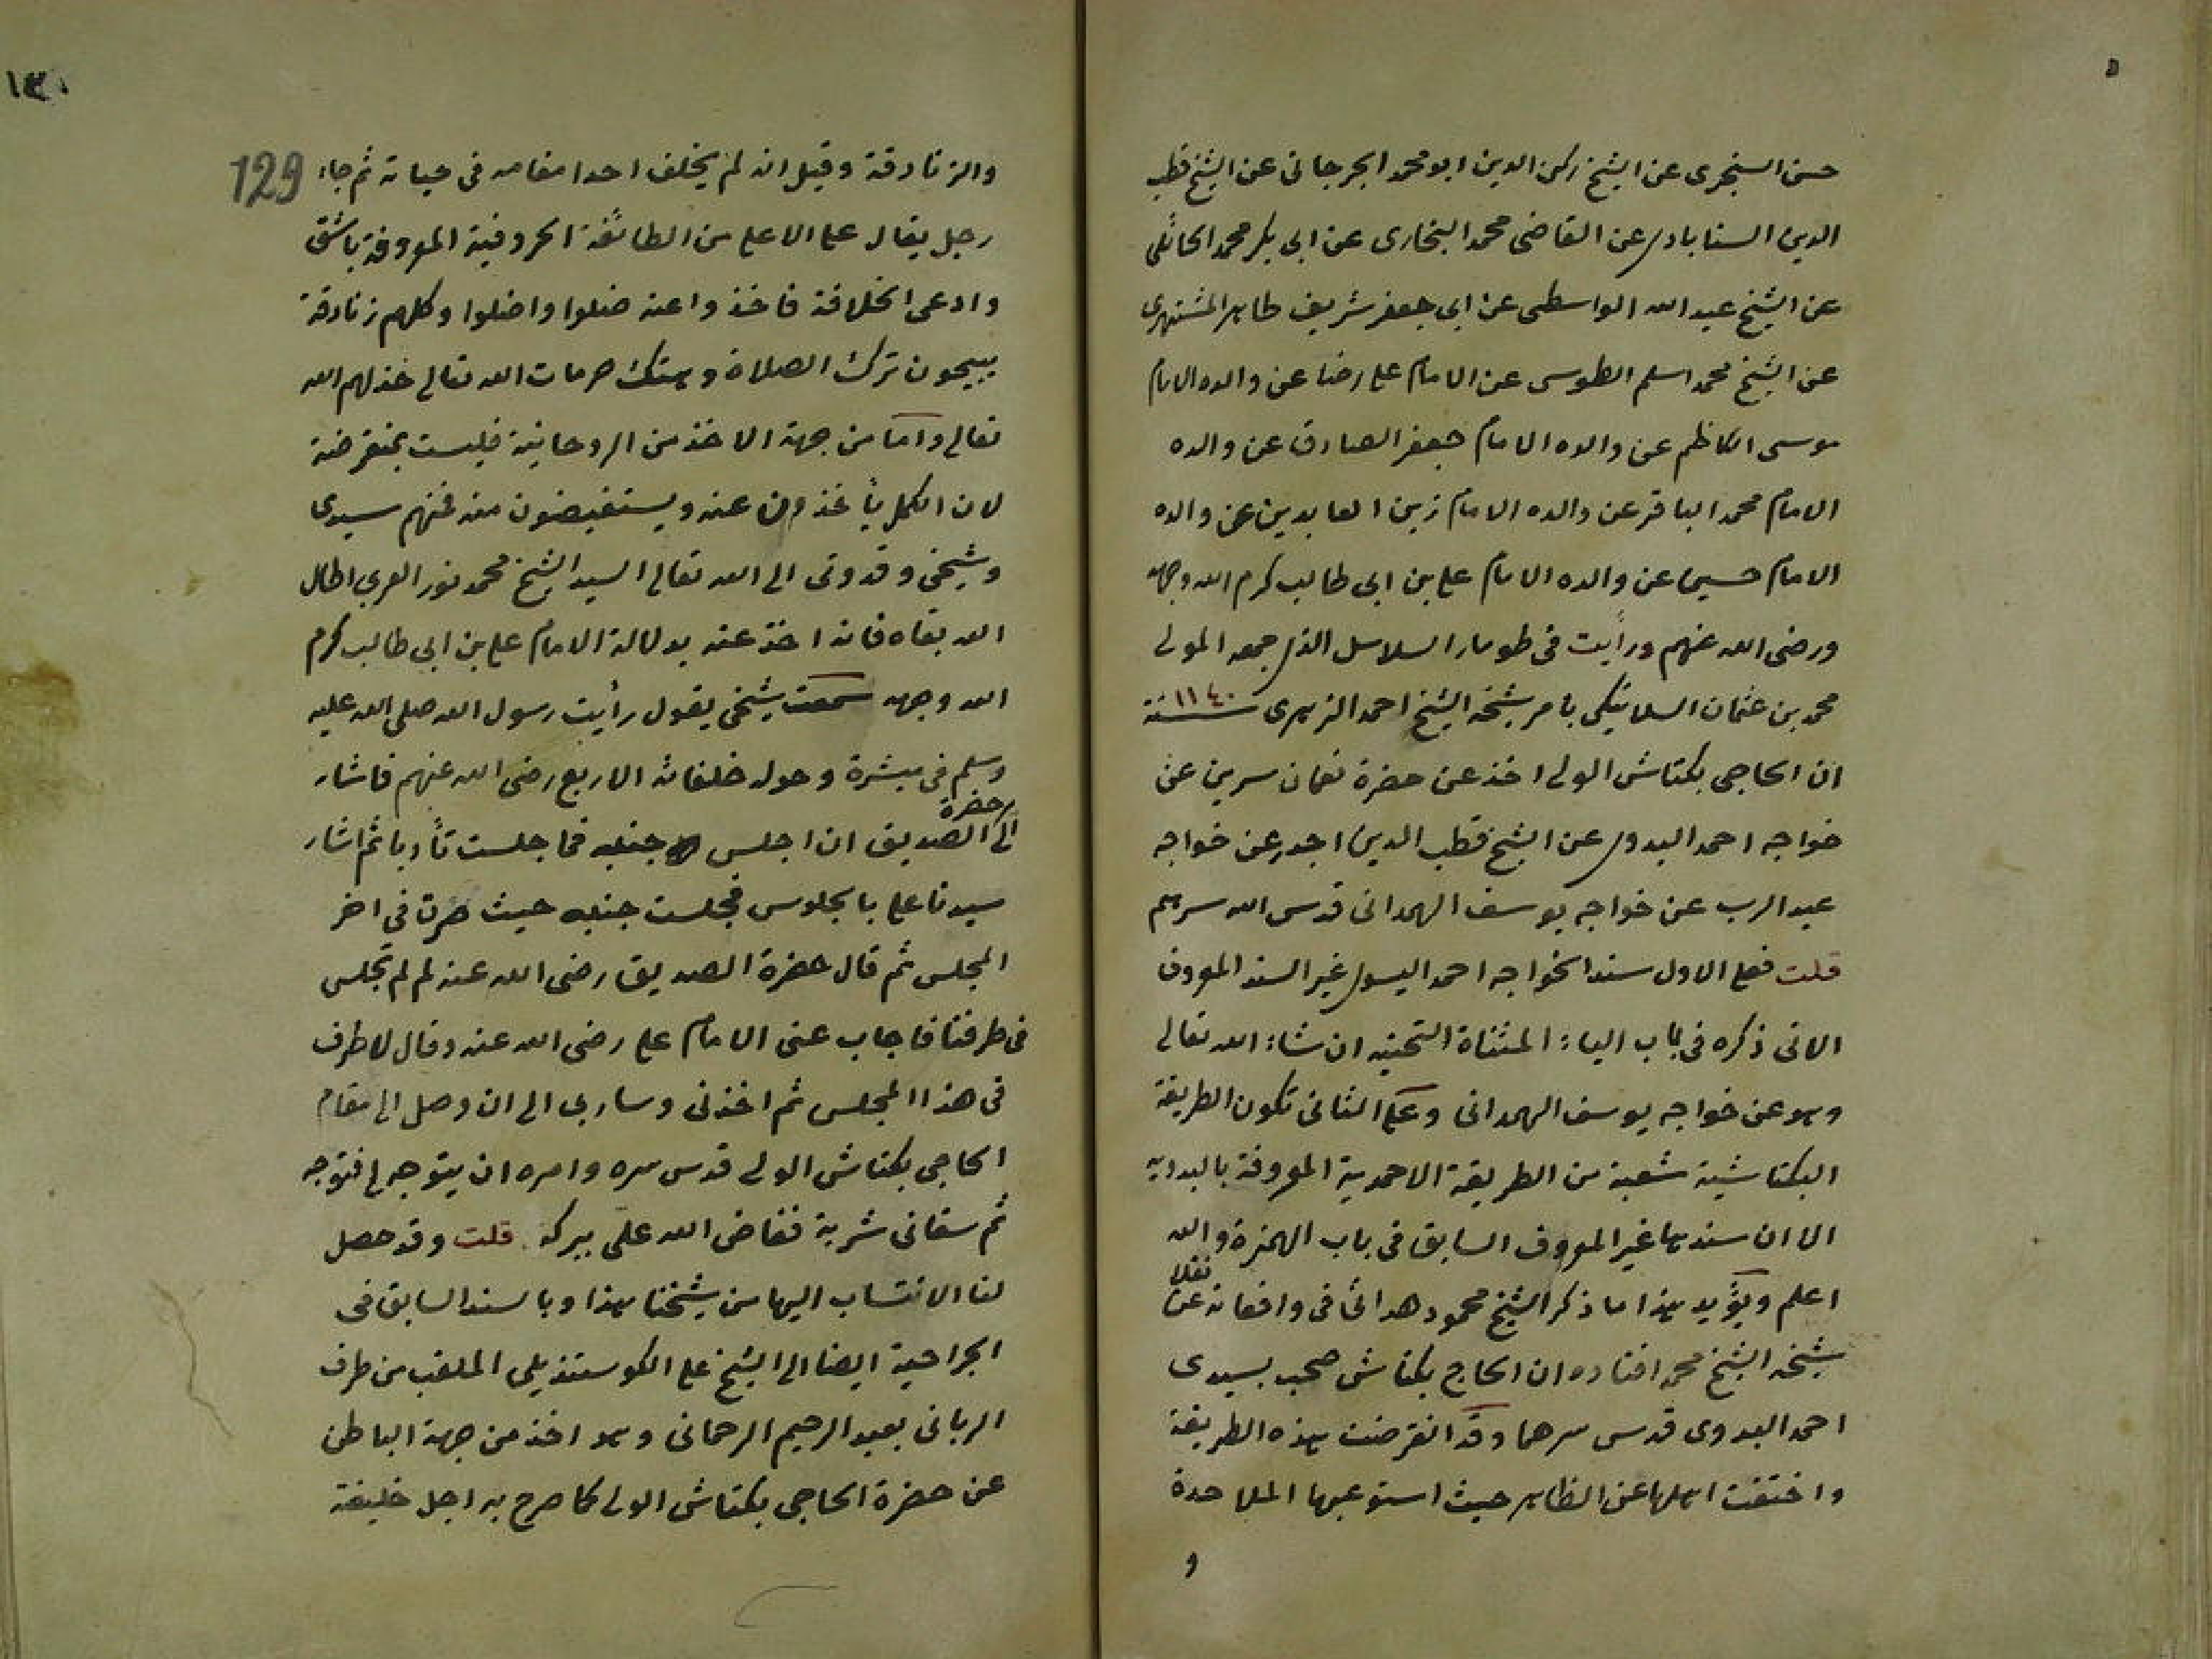 حسن السنجرى عن الشيخ ركن الدين ابو محمد الجرجانى عن الشيخ قطب
الدين السنابادى عن القاضى محمد البخارى عن ابى بكر محمد
عن الشيخ عبد الله الواسطى عن ابى جعفر شريف طاهر المشتهرى
عن الشيخ محمد اسلم الطوسى عن الامام على رضا عن والده الامام
موسى الكاظم عن والده الامام جعفر الصادق عن والده
الامام محمد الباقر عن والده الامام زين العابدين عن والده
الامام حسين عن والده الامام على بن ابى طالب كرم الله وجهه
ورضى الله عنهم ورأيت فى طومار السلاسل الذى جمعه المولى
محمد بن عثمان السلانيكى بامر شيخه الشيخ احمد الزهرى سنة ١١٤٠
ان الحاجى بكتاش الولى اخذ عن حضرة نعمان سرين عن
خواجه احمد البدوى عن الشيخ قطب الدين اجدر عن خواجه
عبد الرب عن خواجه يوسف الهمدانى قدس الله سرهم
قلت فعلى الاول سند الخواجه احمد اليسوى غير السند المعروف
الاتى ذكره فى باب الياء المثناة التحتيه ان شاء الله تعالى
وهو عن خواجه يوسف الهمدانى وعلى الثانى تكون الطريقة
البكتاشية شعبة من الطريقة الاحمدية المعروفة بالبدويه
الا ان سندها غير المعروف السابق فى باب الهمزة والله
اعلم ويؤيد هذا ما ذكر الشيخ محمود هدائى فى واقعاته نقلا عن
شيخه الشيخ محمد افتاده ان الحاج بكتاش صحب بسيدى
احمد البدوى قدس سرهما وقد انقرضت هذه الطريقة
واختفت اهلها عن الظاهر حيث استوعبها الملاحدة
و
١٣٠
129
والزنادقة وقيل انه لم يخلف احدا مقامه فى حياته ثم جاء
رجل يقال على الاعلى من الطائفة الحروفية المعروفة باشق
وادعى الخلافة فاخذوا عنه ضلوا واضلوا وكلهم زنادقة
يبيحون ترك الصلاة وهتك حرمات الله تعالى خذلهم الله
تعالى واما من جهة الاخذ من الروحانية فليست بمنقرضة
لان الكل يأخذون عنه ويستفيضون منه فمنهم سيدى
وشيخى وقدوتى الى الله تعالى السيد الشيخ محمد نور العربى اطال
الله بقاه فانه اخذ عنه بدلالة الامام على بن ابى طالب كرم
الله وجهه سمعت شيخى يقول رأيت رسول الله صلى الله عليه
وسلم فى مبشرة وحوله خلفائه الاربع رضى الله عنهم فاشار
الى حضرة الصديق ان اجلس جنبه فما جلست تأدبا ثم اشار
سيدنا على بالجلوس فجلست جنبه حيث صرت فى اخر
المجلس ثم قال حضرة الصديق رضى الله عنه لم لم تجلس
فى طرفنا فاجاب عنى الامام على رضى الله عنه وقال لا طرف
فى هذا المجلس ثم اخذنى وسار بى الى ان وصل الى مقام
الحاجى بكتاش الولى قدس سره وامره ان يتوجه لى فتوجه
ثم سقانى شربة ففاض الله على ببركه قلت وقد حصل
لنا الانتساب اليها من شيخنا هذا وبالسند السابق فى
الجراحية ايضا الى الشيخ على الكوستنديلى الملقب من طرف
الربانى بعبد الرحيم الرحمانى وهو اخذ من جهة الباطن
عن حضرة الحاجى بكتاش الولى كما صرح به اجل خليفة